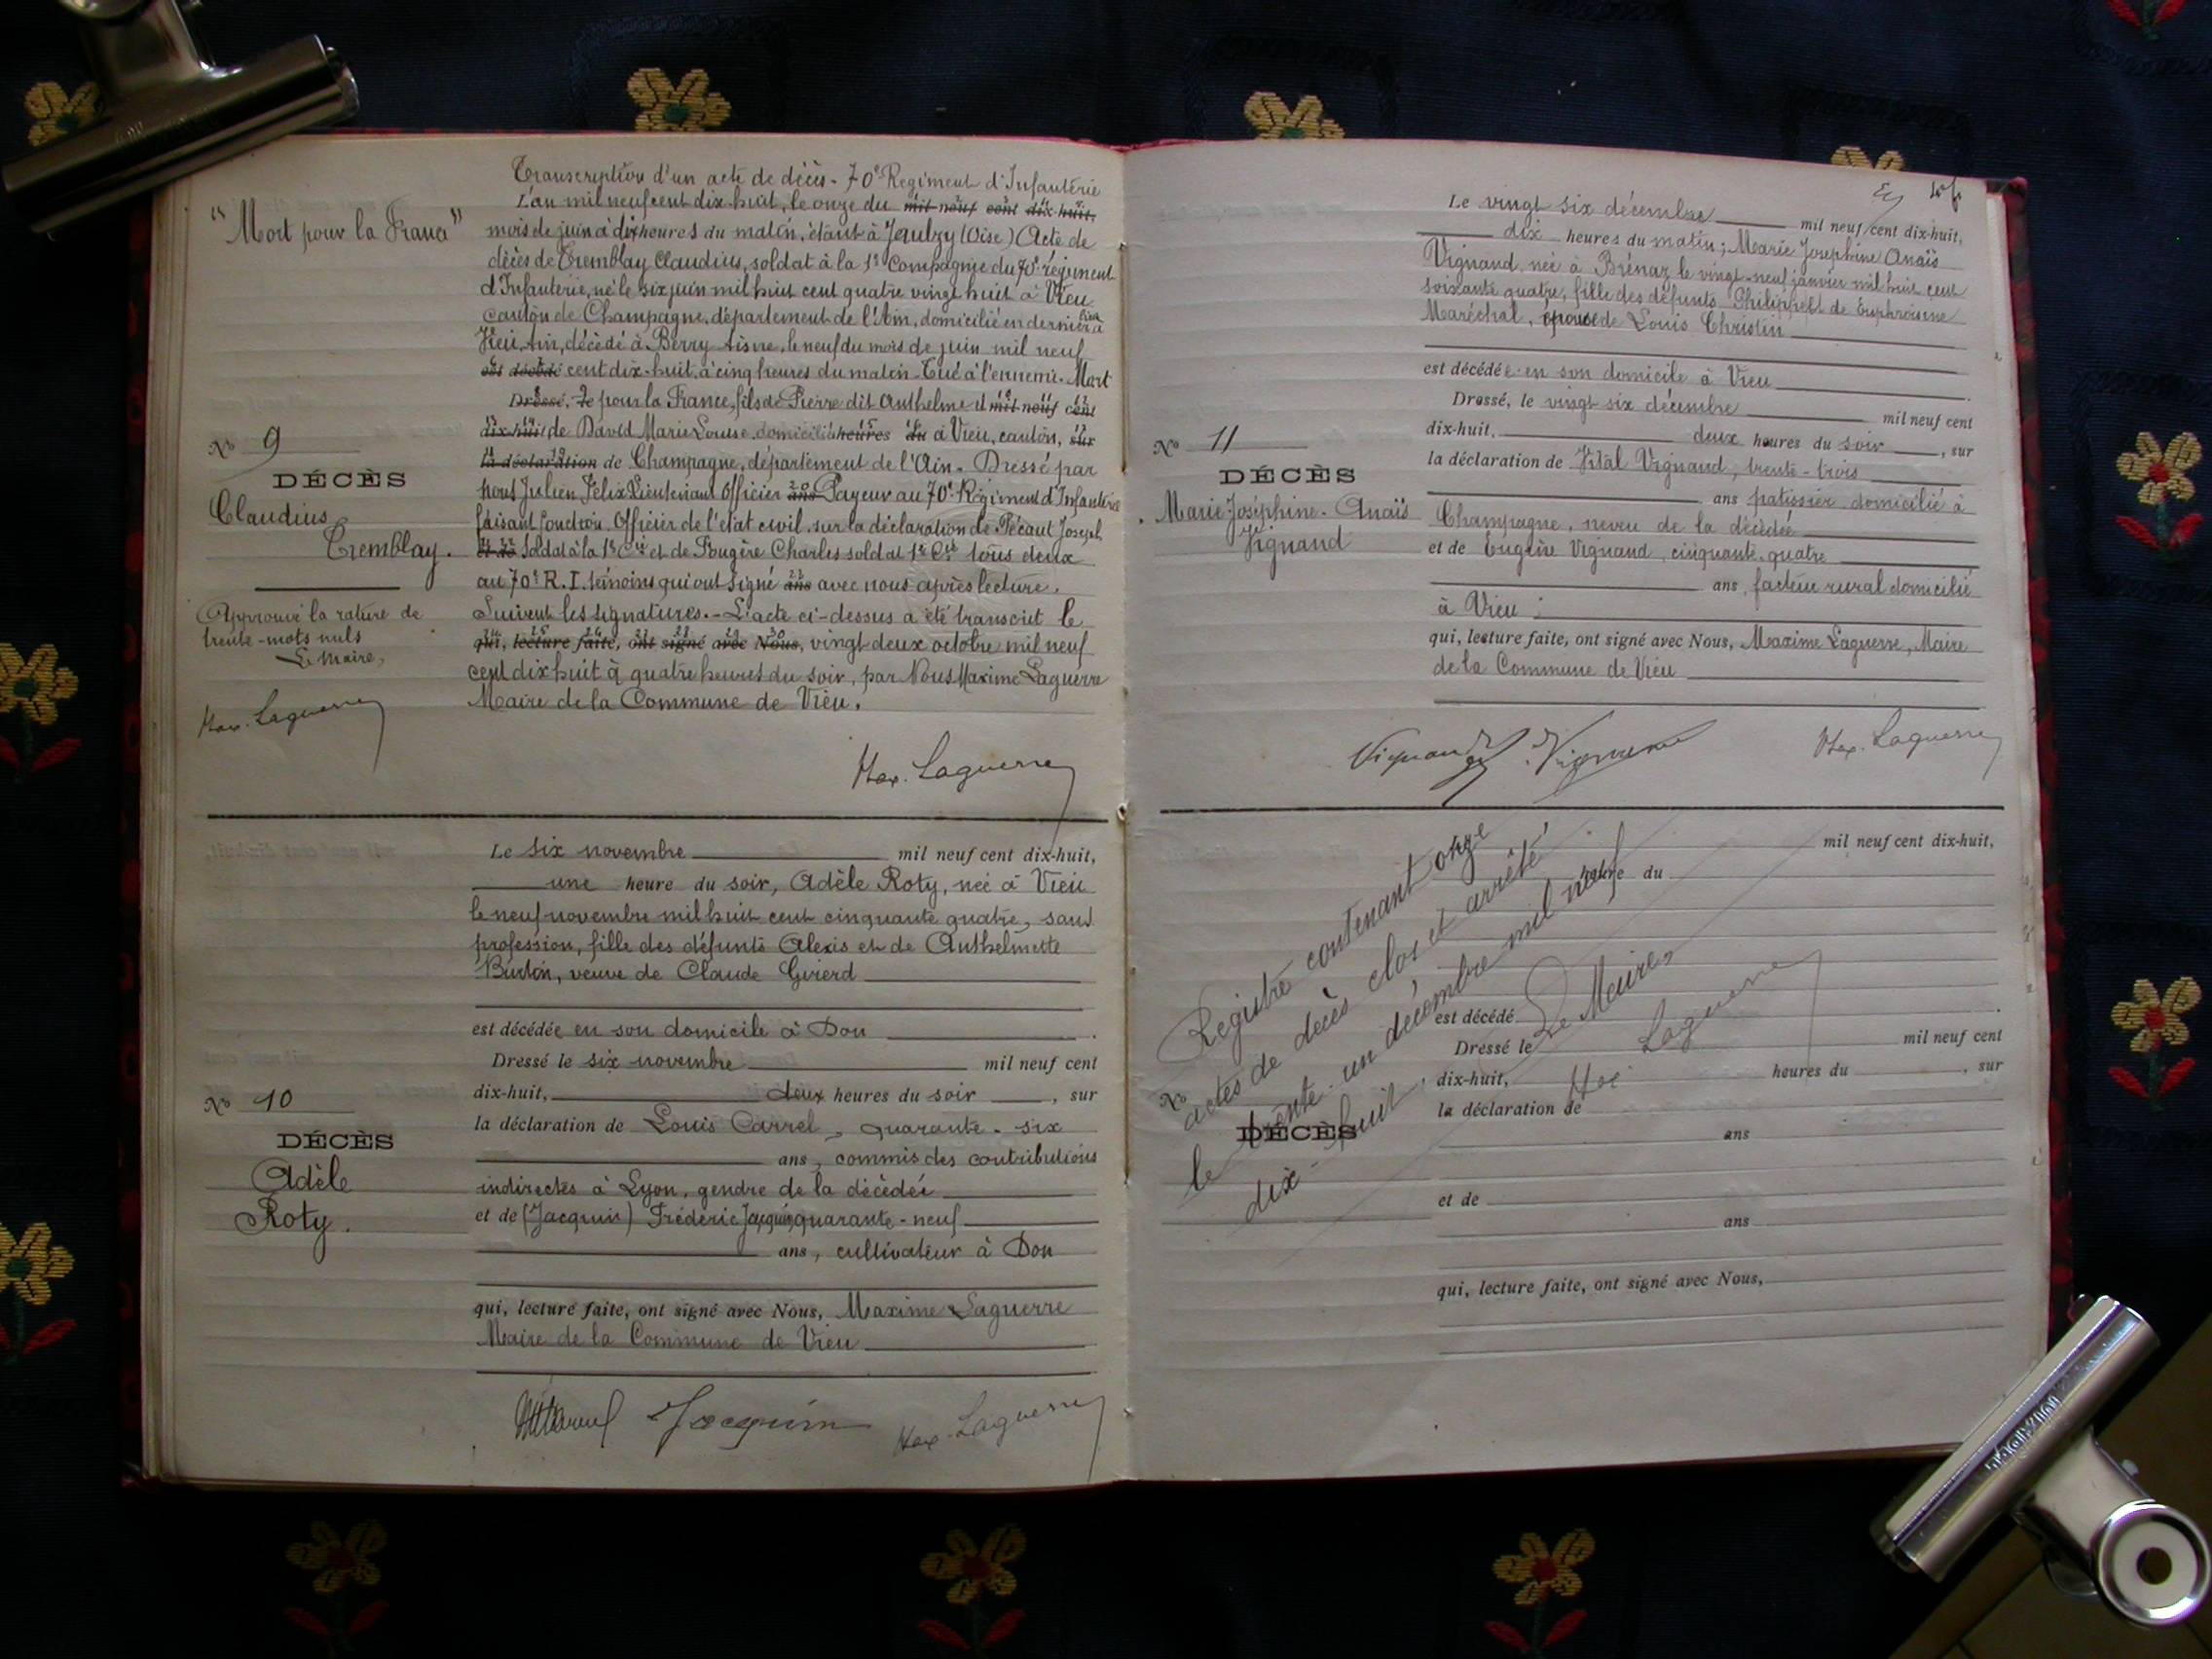 "Mort pour la France"
Transcription d'un acte de décès - 70e Régiment d'Infanterie
L'an mil neuf cent dix-huit, le onze du mil neuf cent dix-huit,
mois de juin à dix heures du matin, étant à Jaulzy (Oise) Acte de
décès de Tremblay Claudius, soldat à la 1e Compagnie du 70e régiment
d'Infanterie, né le six juin mil huit cent quatre vingt huit à Vieu
canton de Champagne, département de l'Ain, domicilié en dernier lieu à
Vieu, Ain, décédé à Berry Aisne, le neuf du mois de juin mil neuf
est décédé cent dix-huit, à cinq heures du matin - Tué à l'ennemi - Mort
Dressé, le pour la France, fils de Pierre dit Anthelme et mil neuf cent
dix-huit de David Marie Louise domiciliés heures du à Vieu, canton, sur
la déclaration de Champagne, département de l'Ain. Dressé par
nous Julien Félix Lieutenant Officier ans Payeur au 70e Régiment d'Infanterie
faisant fonction Officier de l'état civil, sur la déclaration de Técaut Joseph
et de Soldat à la 1e Cie et de Fougère Charles soldat 1e Cie tous deux
au 70e R.I. témoins qui ont signé ans avec nous après lecture.
Suivent les signatures. - L'acte ci-dessus a été transcrit le
qui, lecture faite, ont signé avec Nous, vingt deux octobre mil neuf
cent dix huit à quatre heures du soir, par Nous Maxime Laguerre
Maire de la Commune de Vieu.
No 9
DÉCÈS
Claudius
Tremblay.
Approuvé la rature de
trente-mots nuls
Le Maire,
Max. Laguerre
Max. Laguerre
Le six novembre mil neuf cent dix-huit,
une heure du soir, Adèle Roty, née à Vieu
le neuf novembre mil huit cent cinquante quatre, sans
profession, fille des défunts Alexis et de Anthelmette
Burdin, veuve de Claude Gvierd
est décédée en son domicile à Don.
Dressé le six novembre mil neuf cent
dix-huit, deux heures du soir, sur
la déclaration de Louis Carrel, quarante-six
ans, commis des contributions
indirectes à Lyon, gendre de la décédée
et de (Jacquin) Frédéric Jacquin, quarante-neuf
ans, cultivateur à Don
qui, lecture faite, ont signé avec Nous, Maxime Laguerre
Maire de la Commune de Vieu
No 10
DÉCÈS
Adèle
Roty.
Jacquin Max. Laguerre
Le vingt six décembre mil neuf cent dix-huit,
dix heures du matin; Marie Joséphine Anaïs
Vignand, née à Brénaz le vingt-neuf janvier mil huit cent
soixante quatre, fille des défunts Philippe et de Euphrosine
Maréchal, épouse de Louis Christin
est décédée en son domicile à Vieu.
Dressé, le vingt six décembre mil neuf cent
dix-huit, deux heures du soir, sur
la déclaration de Vital Vignand, trente-trois
ans patissier domicilié à
Champagne, neveu de la décédée
et de Eugène Vignand, cinquante-quatre
ans, facteur rural domicilié
à Vieu;
qui, lecture faite, ont signé avec Nous, Maxime Laguerre, Maire
de la Commune de Vieu
No 11
DÉCÈS
Marie-Joséphine-Anaïs
Vignand
Vignand Vignand Max. Laguerre
mil neuf cent dix-huit,
heure du
est décédé.
Dressé le mil neuf cent
dix-huit, heures du, sur
la déclaration de
ans
et de
ans
qui, lecture faite, ont signé avec Nous,
No
DÉCÈS
Registre contenant onze
actes de décès clos et arrêté
le trente-un décembre mil neuf
dix-huit,
Le Maire,
Max Laguerre